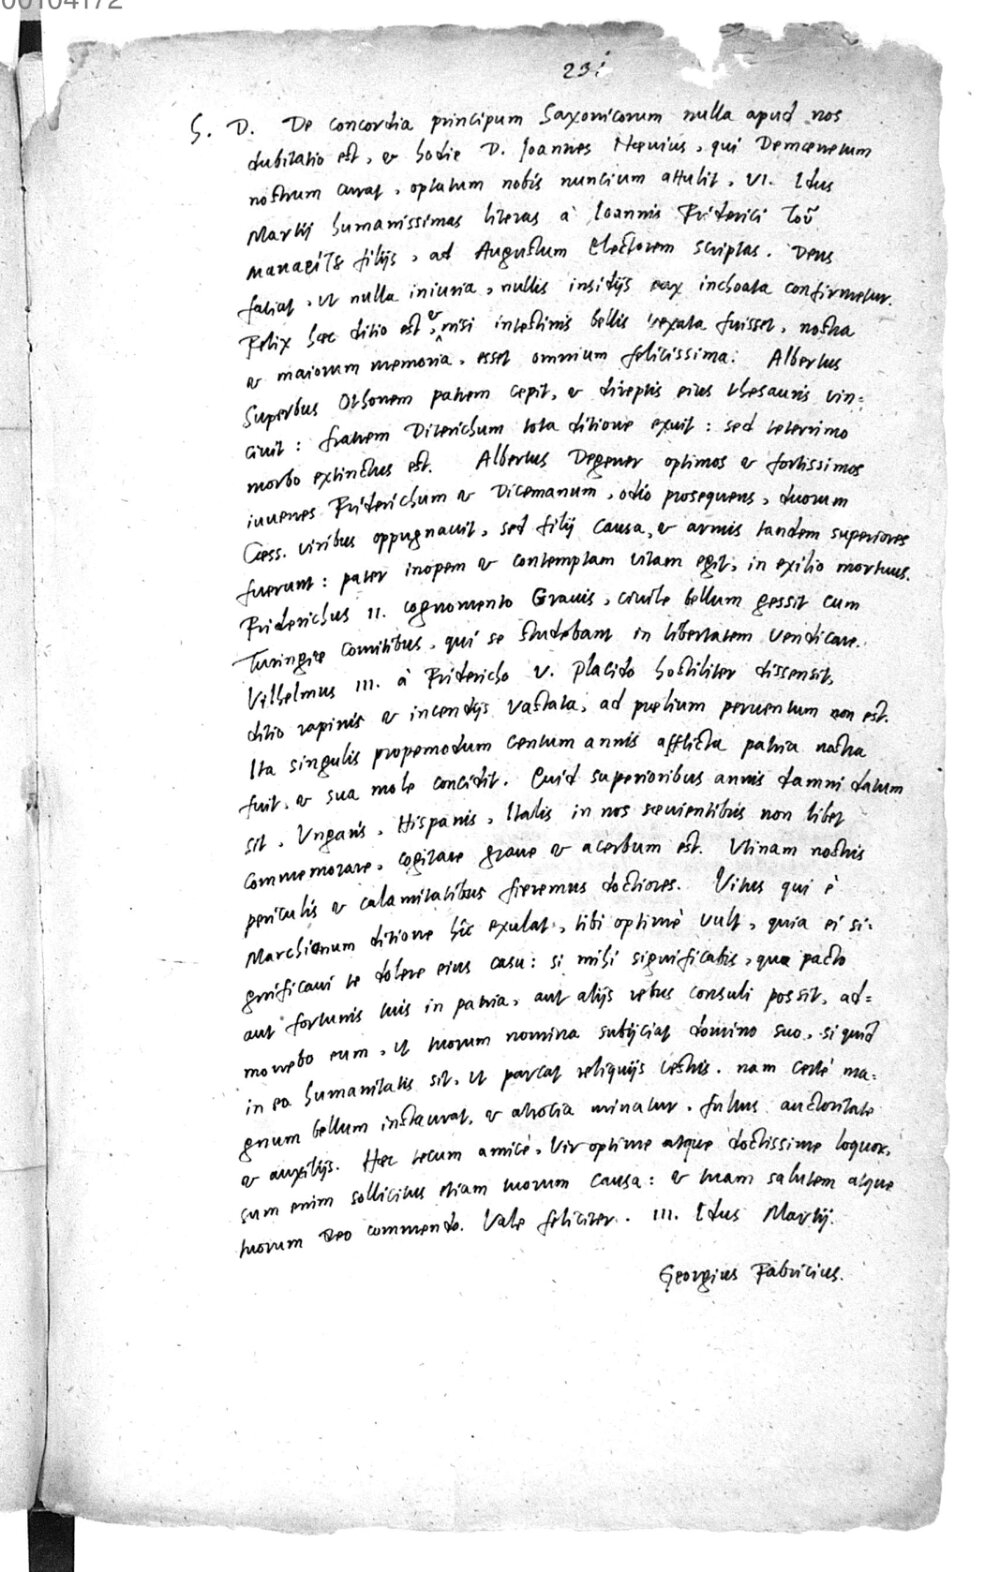 00104172
231
S. D. De concordia principum Saxonicorum nulla apud nos
dubitatio est, & hodie D. Joannes Nævius, qui Demœnetum
nostrum curat, optatum nobis nuncium attulit, VI. Idus
Martij humanissimas literas à Ioannis Friderici τοῦ
μακαρίτου filijs, ad Augustum Electorem scriptas. Deus
faciat, ut nulla iniuria, nullis insidijs pax inchoata confirmetur.
Felix hæc ditio est, & nisi intestinis bellis vexata fuisset, nostra
& maiorum memoria, esset omnium felicissima. Albertus
Superbus Othonem patrem cepit, & direptis eius thesauris vin=
civit: fratrem Diterichum tota ditione exuit: sed teterrimo
morbo extinctus est. Albertus Degener optimos & fortissimos
iuvenes Friderichum & Dicemanum, odio prosequens, duorum
Cæss. viribus oppugnavit, sed filij causa, & armis tandem superiores
fuerunt: pater inopem & contemptam vitam egit, in exilio mortuus.
Friderichus II. cognomento Gravis, civile bellum gessit cum
Turingiæ Comitibus, qui se studebant in libertatem vendicare.
Vilhelmus III. à Friderico V. Placido hostiliter dissensit,
ditio rapinis & incendijs vastata, ad prelium perventum non est.
Ita singulis propemodum centum annis afflicta patria nostra
fuit, & sua mole concidit. Quid superioribus annis damni datum
sit, Vngaris, Hispanis, Italis in nos sævientibus non libet
commemorare, cogitare grave & acerbum est. Utinam nostris
periculis & calamitatibus fieremus doctiores. Vitus qui è
Marchionum ditione hîc exulat, tibi optimè vult, quia ei si-
gnificavi te dolere eius casu: si mihi significabis, quo pacto
aut fortunis tuis in patria, aut alijs rebus consuli possit, ad=
monebo eum, ut tuorum nomina subijciat domino suo, si quid
in eo humanitatis sit, ut parcat reliquijs vestris. nam certè ma-
gnum bellum instaurat, & atrocia minatur, fultus auctoritate
& auxilijs. Hæc tecum amicè, Vir optime atque doctissime loquor,
sum enim sollicitus etiam tuorum causa: & tuam salutem atque
tuorum Deo commendo. Vale feliciter. III. Idus Martij.
Georgius Fabricius.